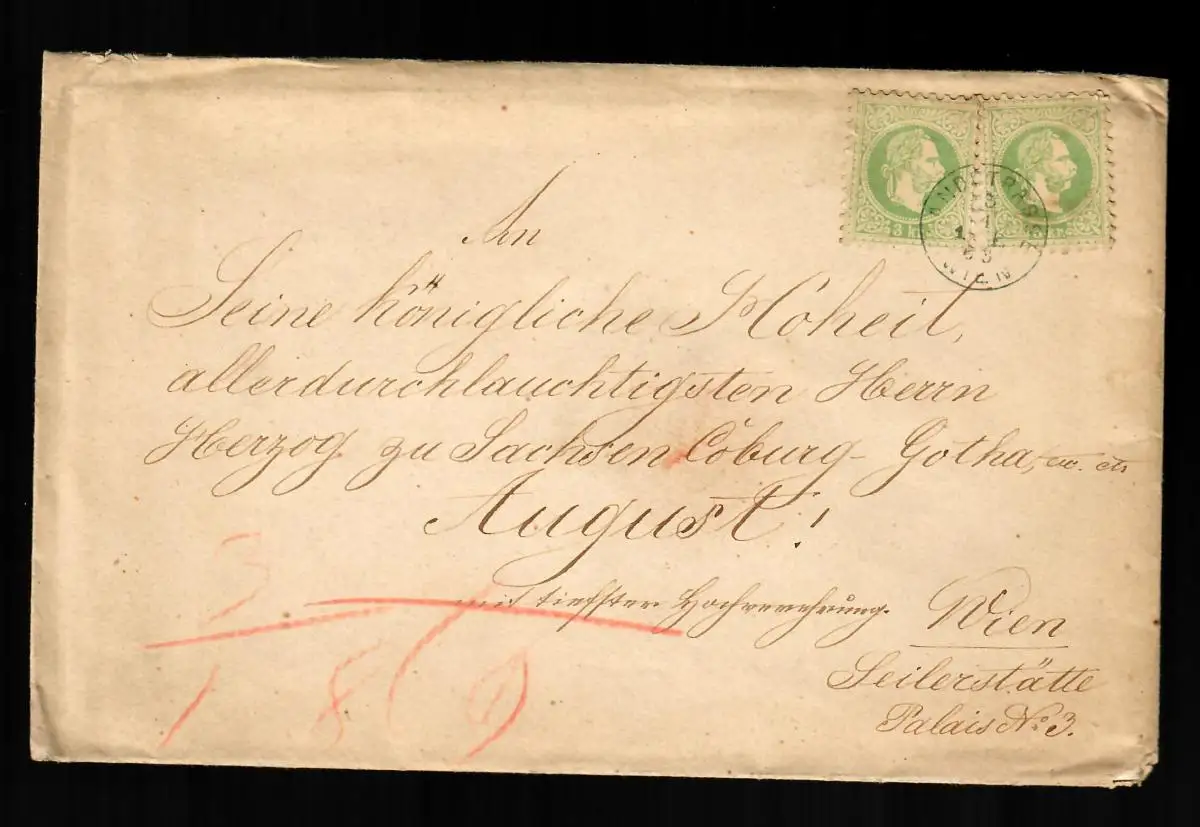 3 kr.
An
Seine königliche Hoheit,
allerdurchlauchtigsten Herrn
Herzog zu Sachsen Coburg-Gotha, etc. etc
August!
mit tiefster Hochverehrung.
Wien
Seilerstätte
Palais No 3.
3
1 8 69
WIEN